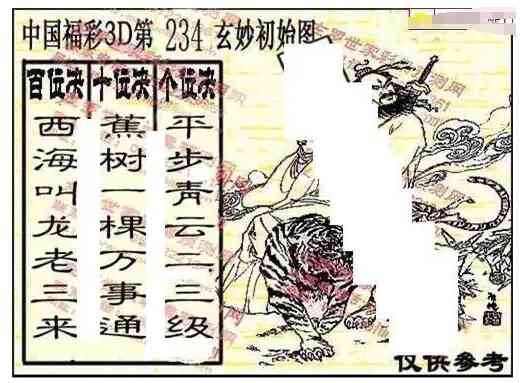 中国福彩3D第 234 玄妙初始图
百位决 十位决 个位决
西海叫龙老三来
蕉树一棵万事通
平步青云二三级
仅供参考